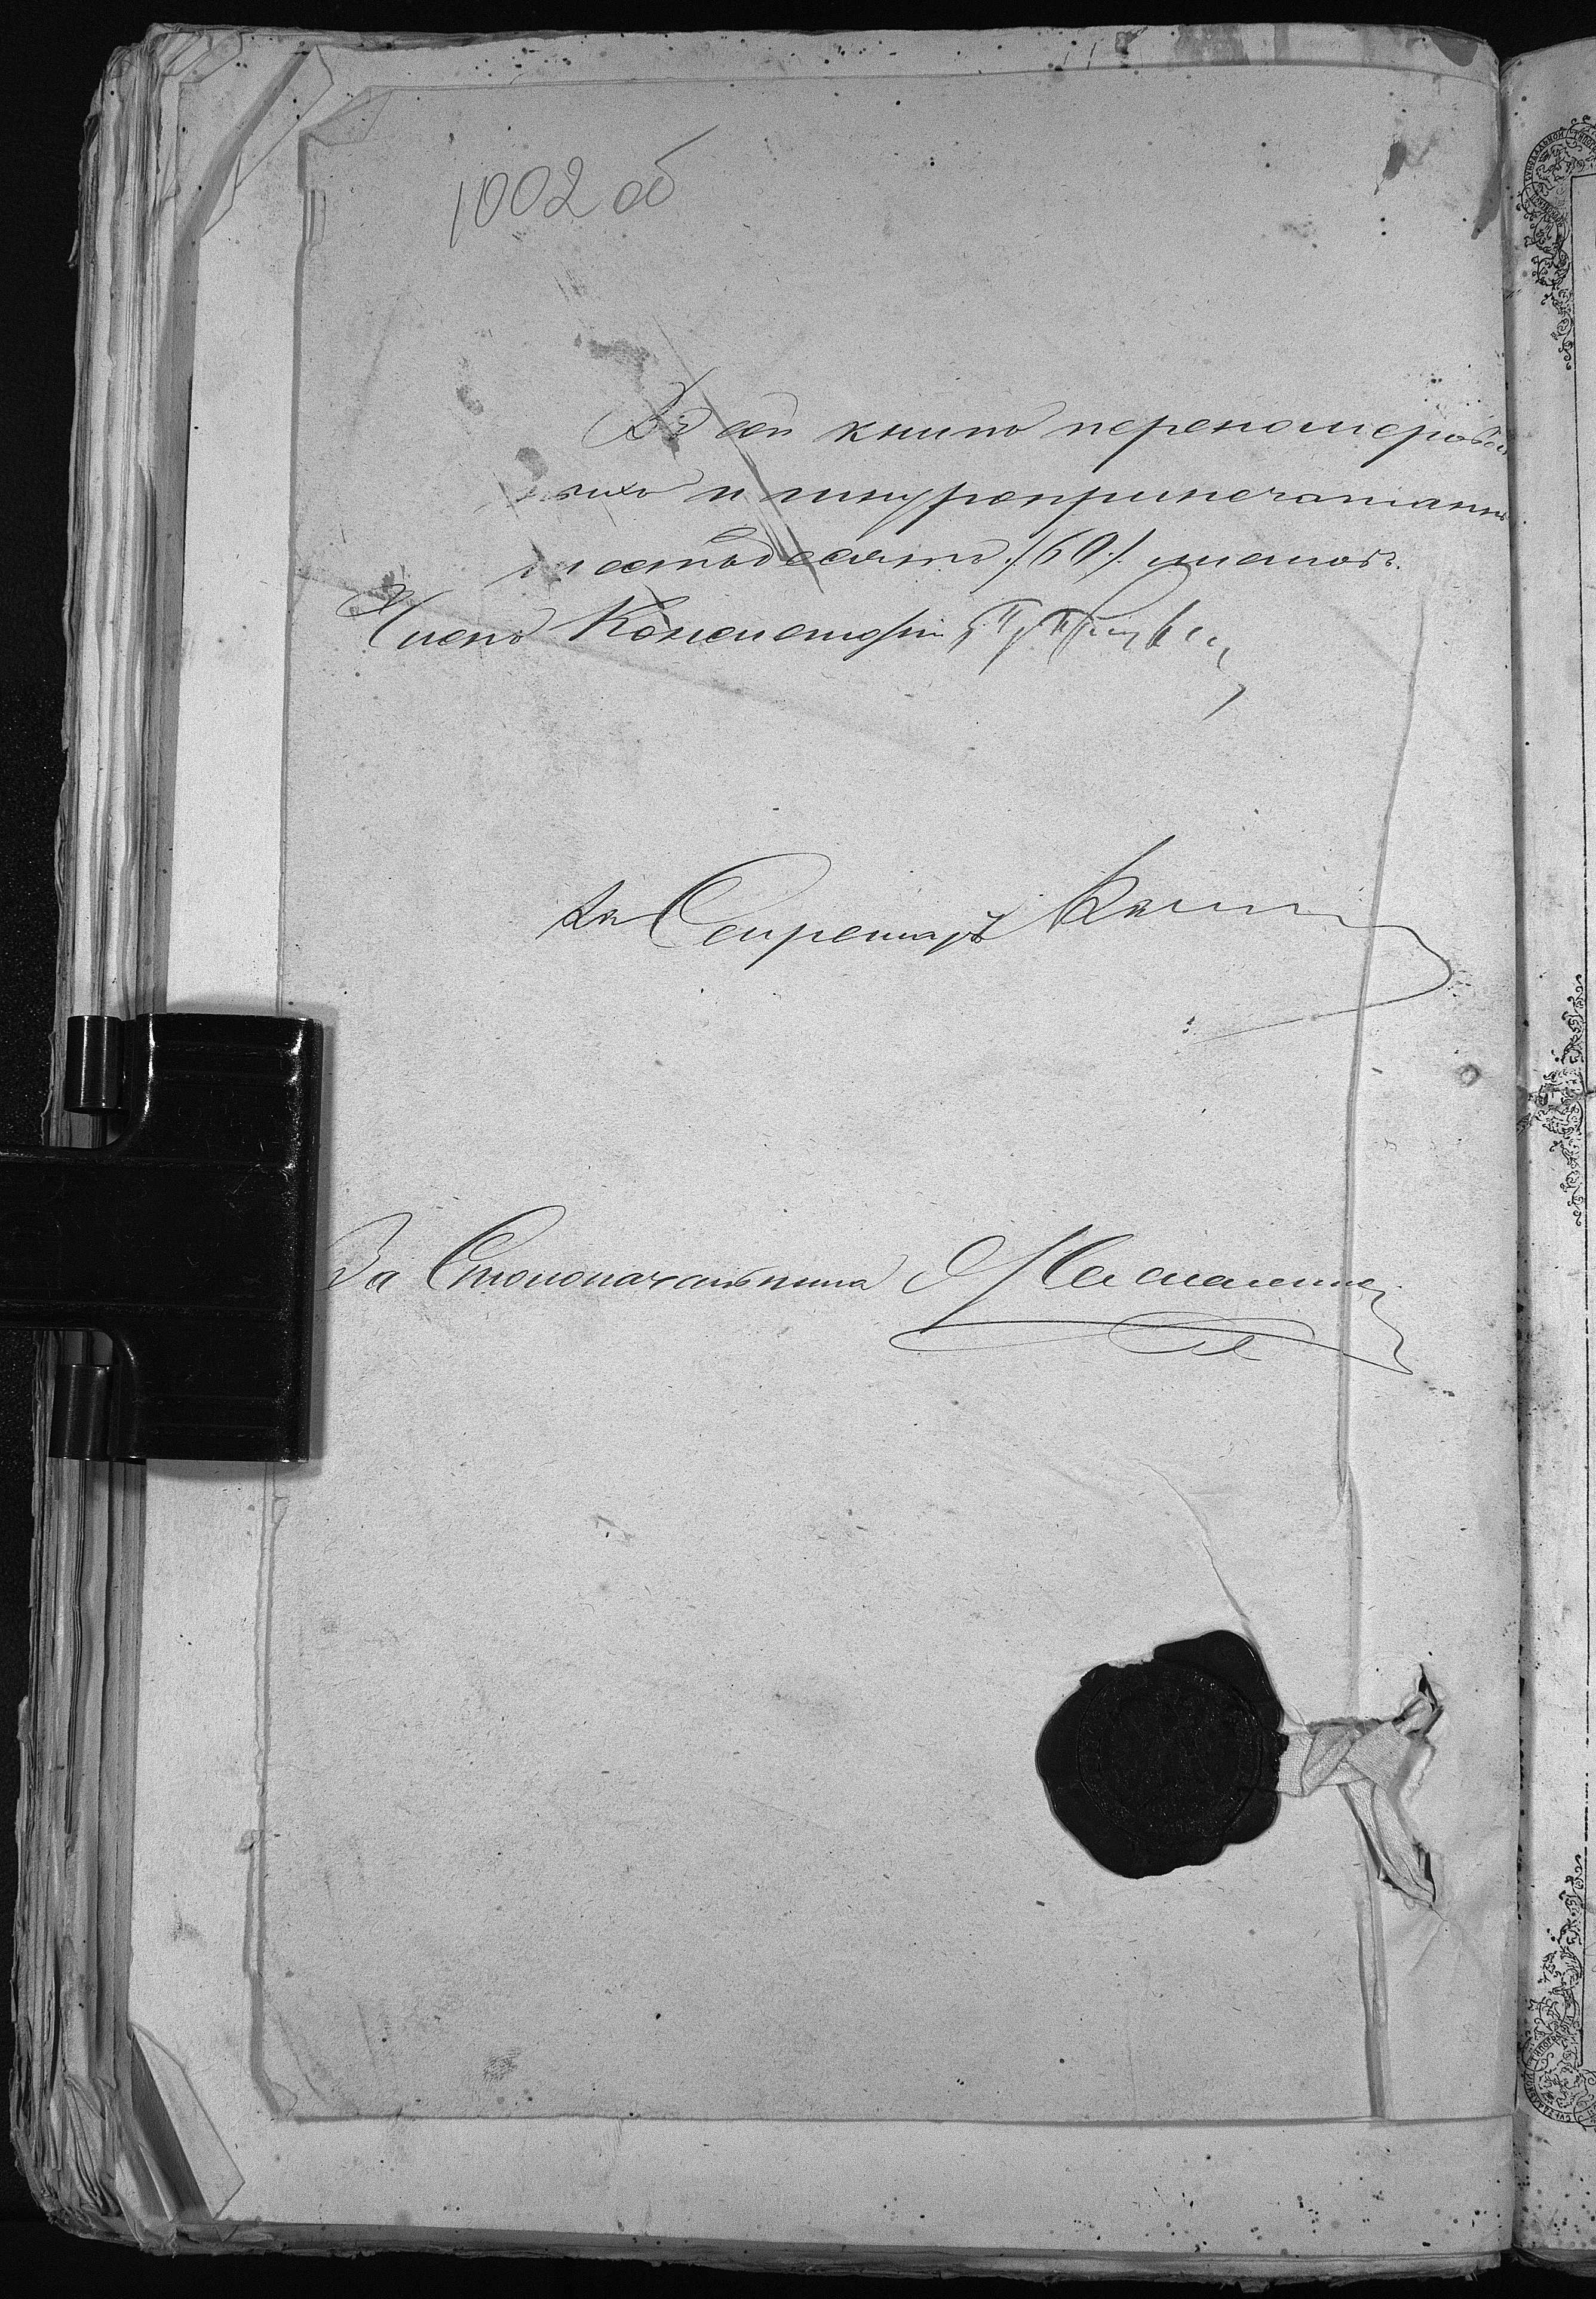 1002 об
Въ сей книгѣ перенумерован
ныхъ и шнуроприпечатанны
шестьдесятъ /60/. листовъ.
Членъ Консисторіи
За Секретаря
За Столоначальника